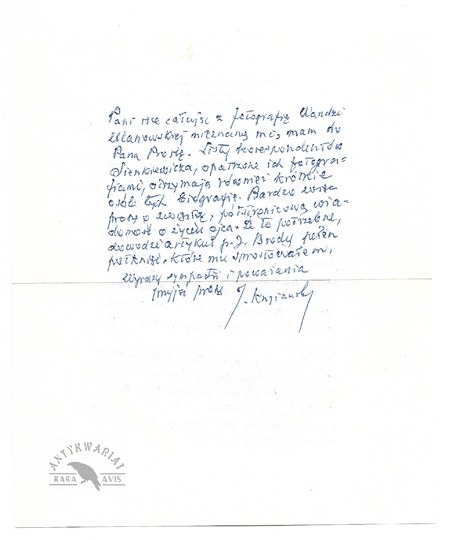 Pani ręce całując z fotografię Wandzi
Ulanowskiej nieznaną mi, mam do
Pana Prośbę. Listy korespondentów
Sienkiewicza, opatrzone ich fotogra-
fiami, otrzymają również krótkie
osób tych biografie. Bardzo
proszę o półstronicową wia-
domość o życiu ojca. Że to potrzebne,
dowodzi artykuł p. J. Brody pełen
które mu sprostowałem,
Wyrazy sympatii i poważania
J.
ANTYKWARIAT
RARA AVIS